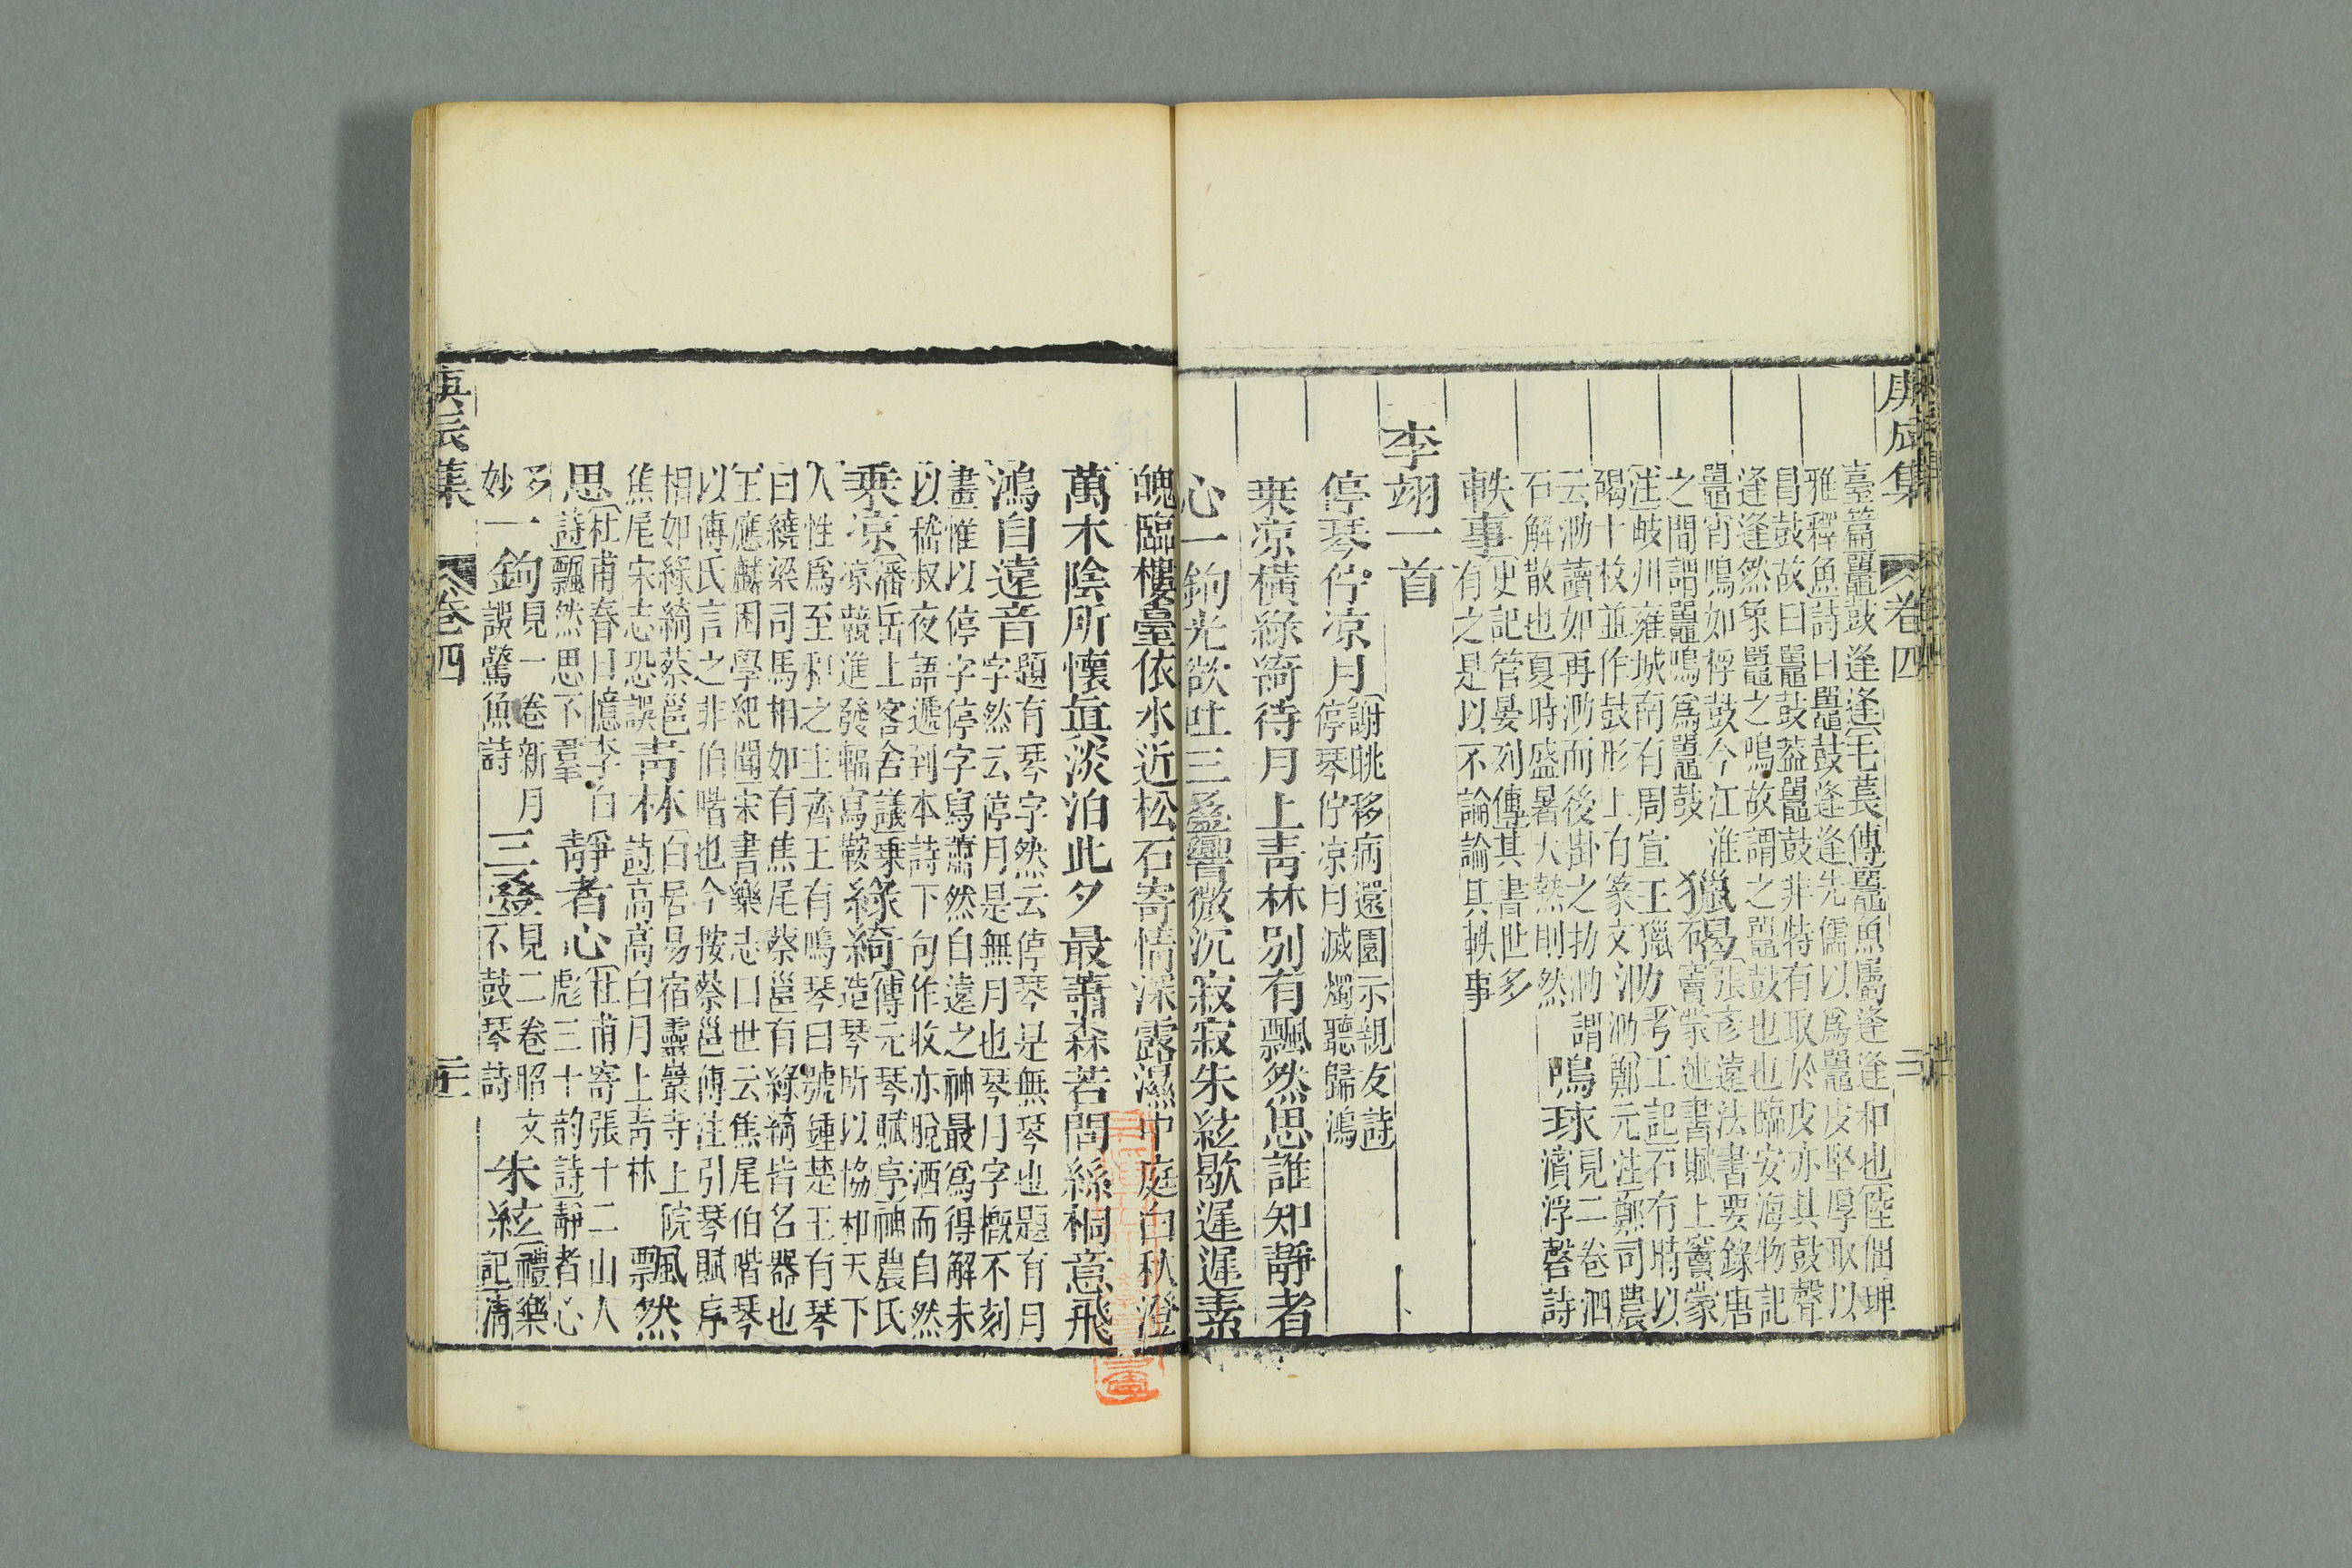 庚辰集 卷四 三
臺篇鼉鼓逢逢毛萇傳鼉魚屬逢逢和也陸佃埤
雅釋魚詩曰鼉鼓逢逢先儒以爲鼉皮堅厚取以
冒鼓故曰鼉鼓葢鼉鼓非特有取於皮亦其鼓聲
逢逢然象鼉之鳴故謂之鼉鼓也也臨安海物記
鼉宵鳴如桴鼓今江淮
之間謂鼉鳴爲鼉鼓
獵碣張彥遠法書要錄唐
竇蒙述書賦上竇蒙
注岐州雍城南有周宣王獵
碣十枚並作鼓形上有篆文
泐考工記石有時以
泐鄭元注鄭司農
云泐讀如再泐而後掛之扐泐謂
石解散也夏時盛暑大熱則然
鳴球見二卷泗
濱浮磬詩
軼事史記管晏列傳其書世多
有之是以不論論其軼事
李翊一首
停琴佇凉月謝眺移病還園示親友詩
停琴佇凉月滅燭聽歸鴻
乗凉橫綠綺待月上青林別有飄然思誰知靜者
心一鉤光欲吐三疊響微沉寂寂朱絃歇遲遲素
魄臨樓臺依水近松石寄情深露濕中庭白秋澄
萬木陰所懷眞淡泊此夕最蕭森若問絲桐意飛
鴻自遠音題有琴字然云停琴是無琴也題有月
字然云停月是無月也琴月字概不刻
畫惟以停字停字寫蕭然自遠之神最爲得解末
以嵇叔夜語遞到本詩下句作收亦脫洒而自然
乗凉潘岳上客舍議乗
凉競進發輻寫鞍
綠綺傅元琴賦序神農氏
造琴所以協和天下
人性爲至和之主齊王有鳴琴曰號鍾楚王有琴
曰繞梁司馬相如有焦尾蔡邕有綠綺皆名器也
王應麟困學紀聞宋書樂志口世云焦尾伯喈琴
以傅氏言之非伯喈也今按蔡邕傅注引琴賦序
相如綠綺蔡邕
焦尾宋志恐誤
青林白居易宿靈巖寺上院
詩高高白月上青林
飄然
思杜甫春日憶李白
詩飄然思不羣
靜者心杜甫寄張十二山人
彪三十韵詩靜者心
多
妙
一鉤見一卷新月
誤驚魚詩
三疊見二卷昭文
不鼓琴詩
朱絃禮樂
記清
庚辰集 卷四 三